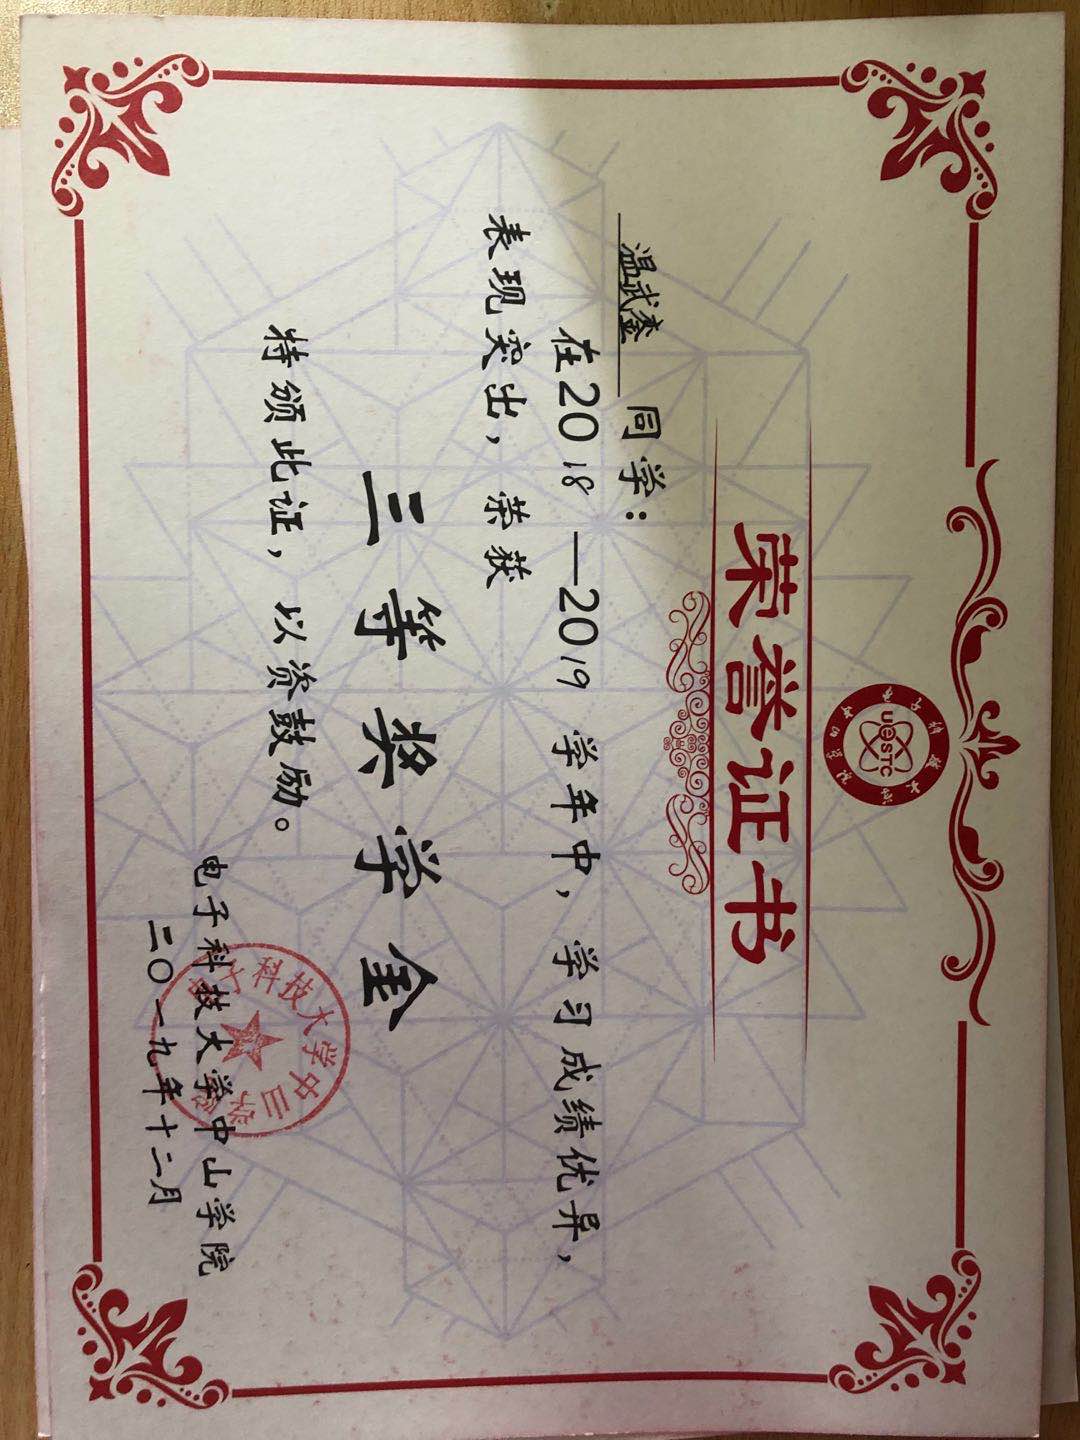 电子科技大学
UeSTC
中山学院
荣誉证书
温武銮 同学：
在2018—2019学年中，学习成绩优异，
表现突出，荣获
三等奖学金
特颁此证，以资鼓励。
电子科技大学中山学院
电子科技大学中山学院
二〇一九年十二月